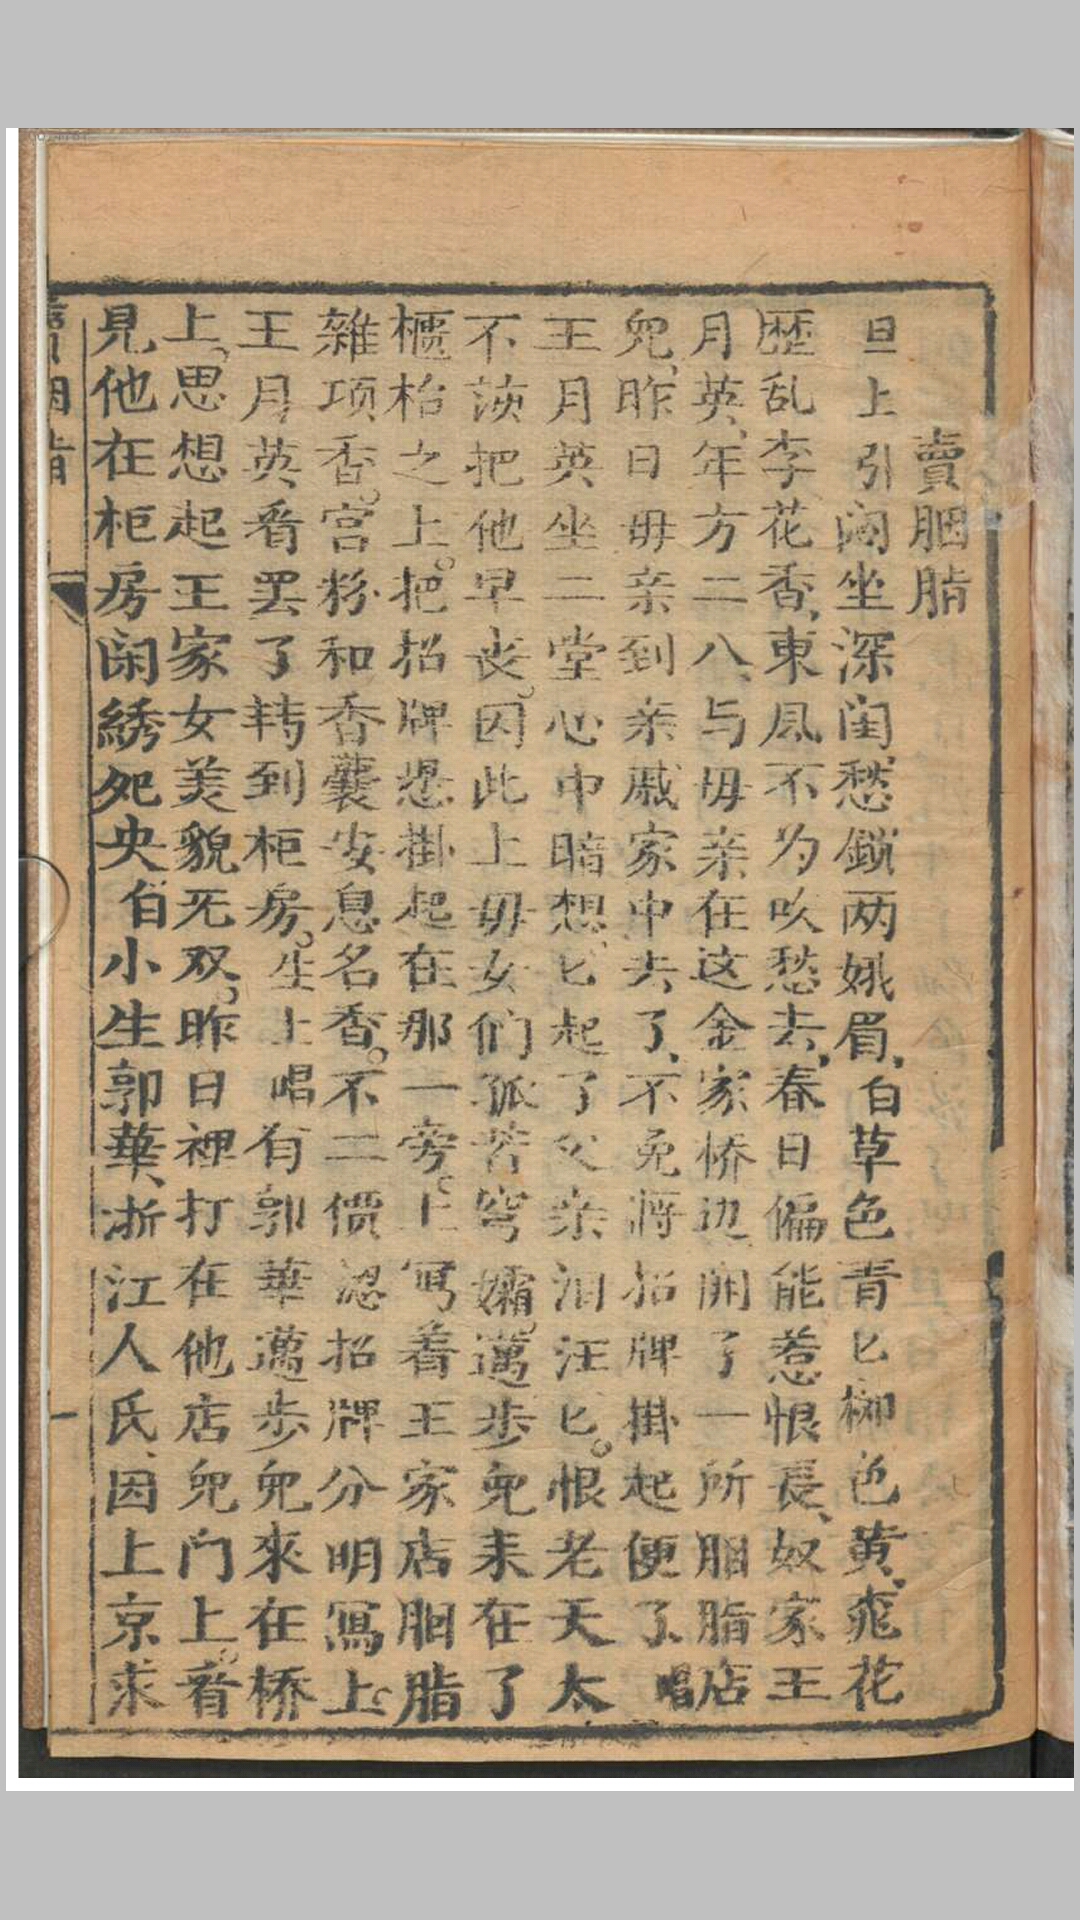 賣胭脂
旦上引闷坐深闺愁鎖两娥眉白草色青匕柳色黄窕花
歷乱李花香東風不为吹愁去春日偏能惹恨長奴家王
月英年方二八与毋亲在这金家桥边開了一所胭脂店
兜昨日毋亲到亲戚家中去了不免將招牌掛起便了唱
王月英坐二堂心中暗想匕起了父亲泪汪匕恨老天太
不該把他早丧因此上毋女们孤苦穹孀邁步兜来在了
櫃枱之上把招牌忽掛起在那一旁上寫着王家店胭脂
雜项香宫粉和香囊安息名香不二價忽招牌分明寫上
王月英看罢了转到柜房生上唱有郭華邁步兜來在桥
上思想起王家女美貌无双昨日裡打在他店兜门上看
見他在柜房闲綉死央伯小生郭華浙江人氏因上京求